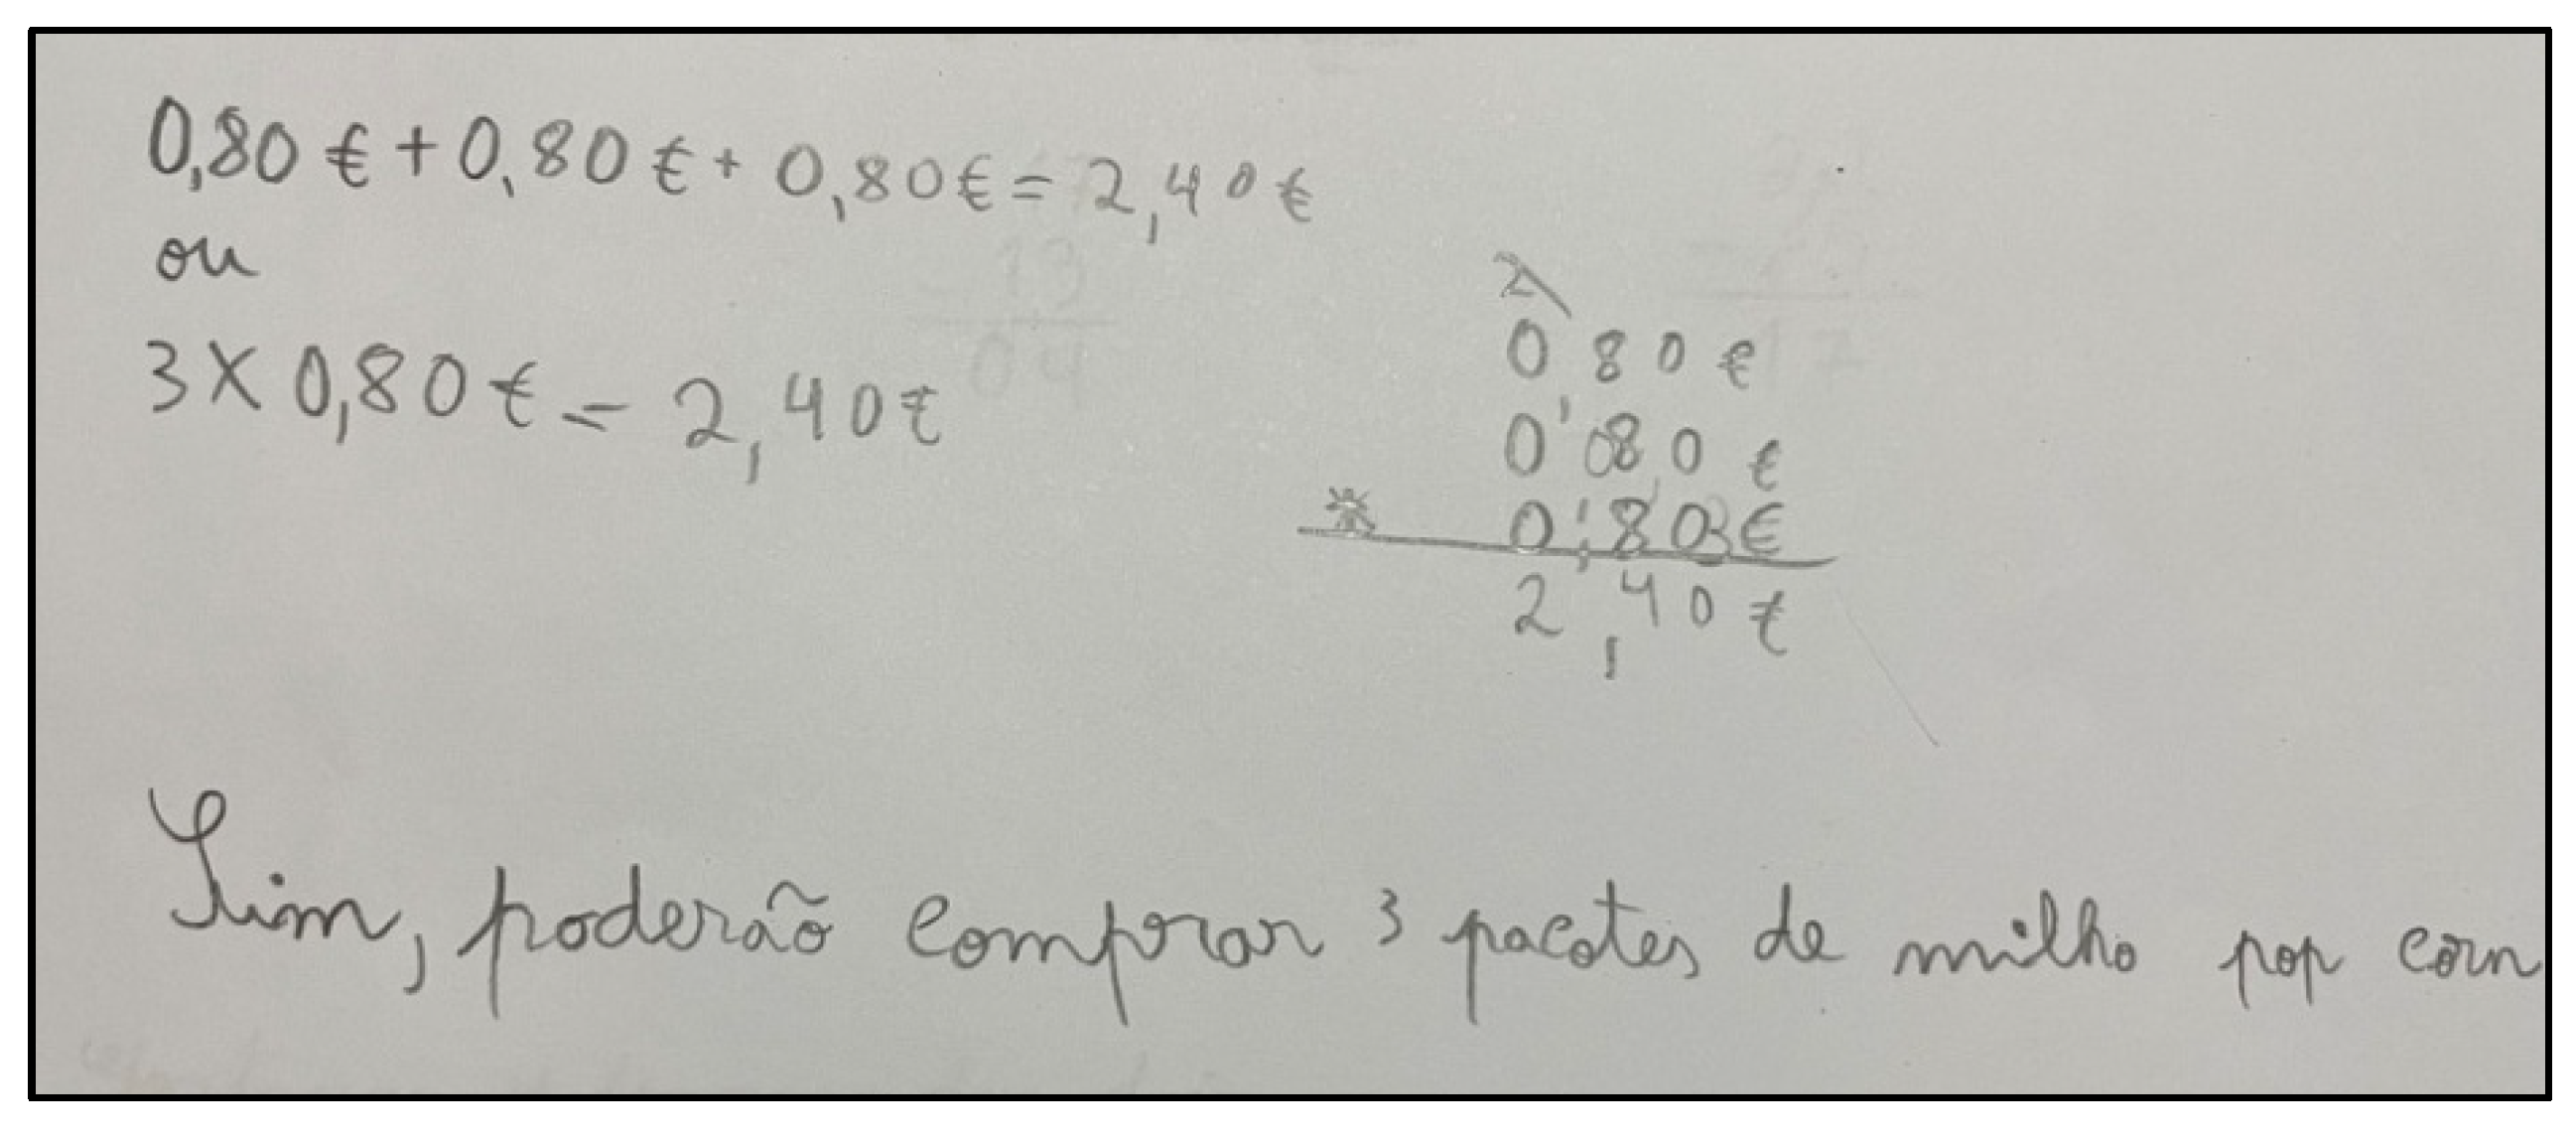 0,80 € + 0,80 € + 0,80 € = 2,40 €
ou
3 X 0,80 € = 2,40 €
2
0 80 €
0,80 €
0,80 €
2,40 €
Sim, poderão comprar 3 pacotes de milho pop corn